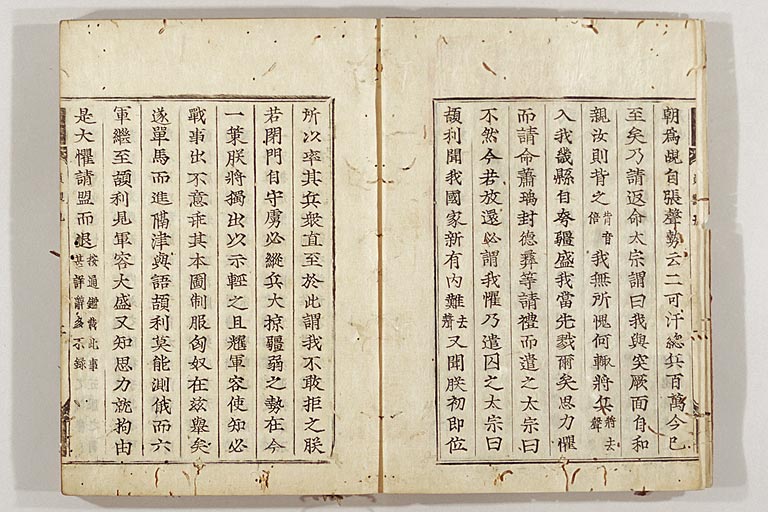 朝爲覘自張聲勢云二可汗總兵百萬今已
至矣乃請返命太宗謂曰我與突厥面自和
親汝則背之背音倍我無所愧何輙將兵將去聲
入我畿縣自夸疆盛我當先戮爾矣思力懼
而請命蕭瑀封德彝等請禮而遣之太宗曰
不然今若放還必謂我懼乃遣囚之太宗曰
頡利聞我國家新有內難去聲又聞朕初即位
所以率其兵衆直至於此謂我不敢拒之朕
若閉門自守虜必縱兵大掠疆弱之勢在今
一策朕將獨出以示輕之且耀軍容使知必
戰事出不意乖其本圖制服匈奴在玆擧矣
遂單馬而進隔津與語頡利莫能測俄而六
軍繼至頡利見軍容大盛又知思力就拘由
是大懼請盟而退按通鑑載此事甚詳茲多不錄